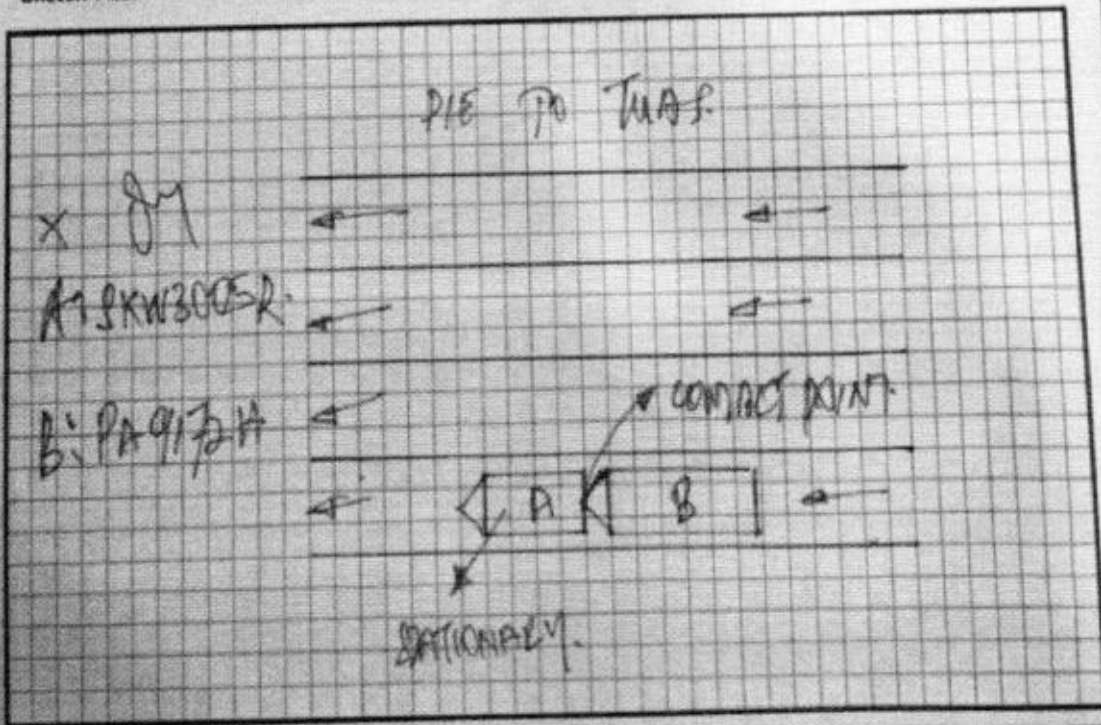 PIE TO TUAS.
X
A: SKW3005R.
B: PA9172H
CONTACT POINT.
A B
STATIONARY.